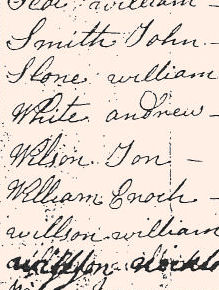 william -
Smith John -
Slone william
White andrew -
Wilson Jon -
William Enoch -
willson william